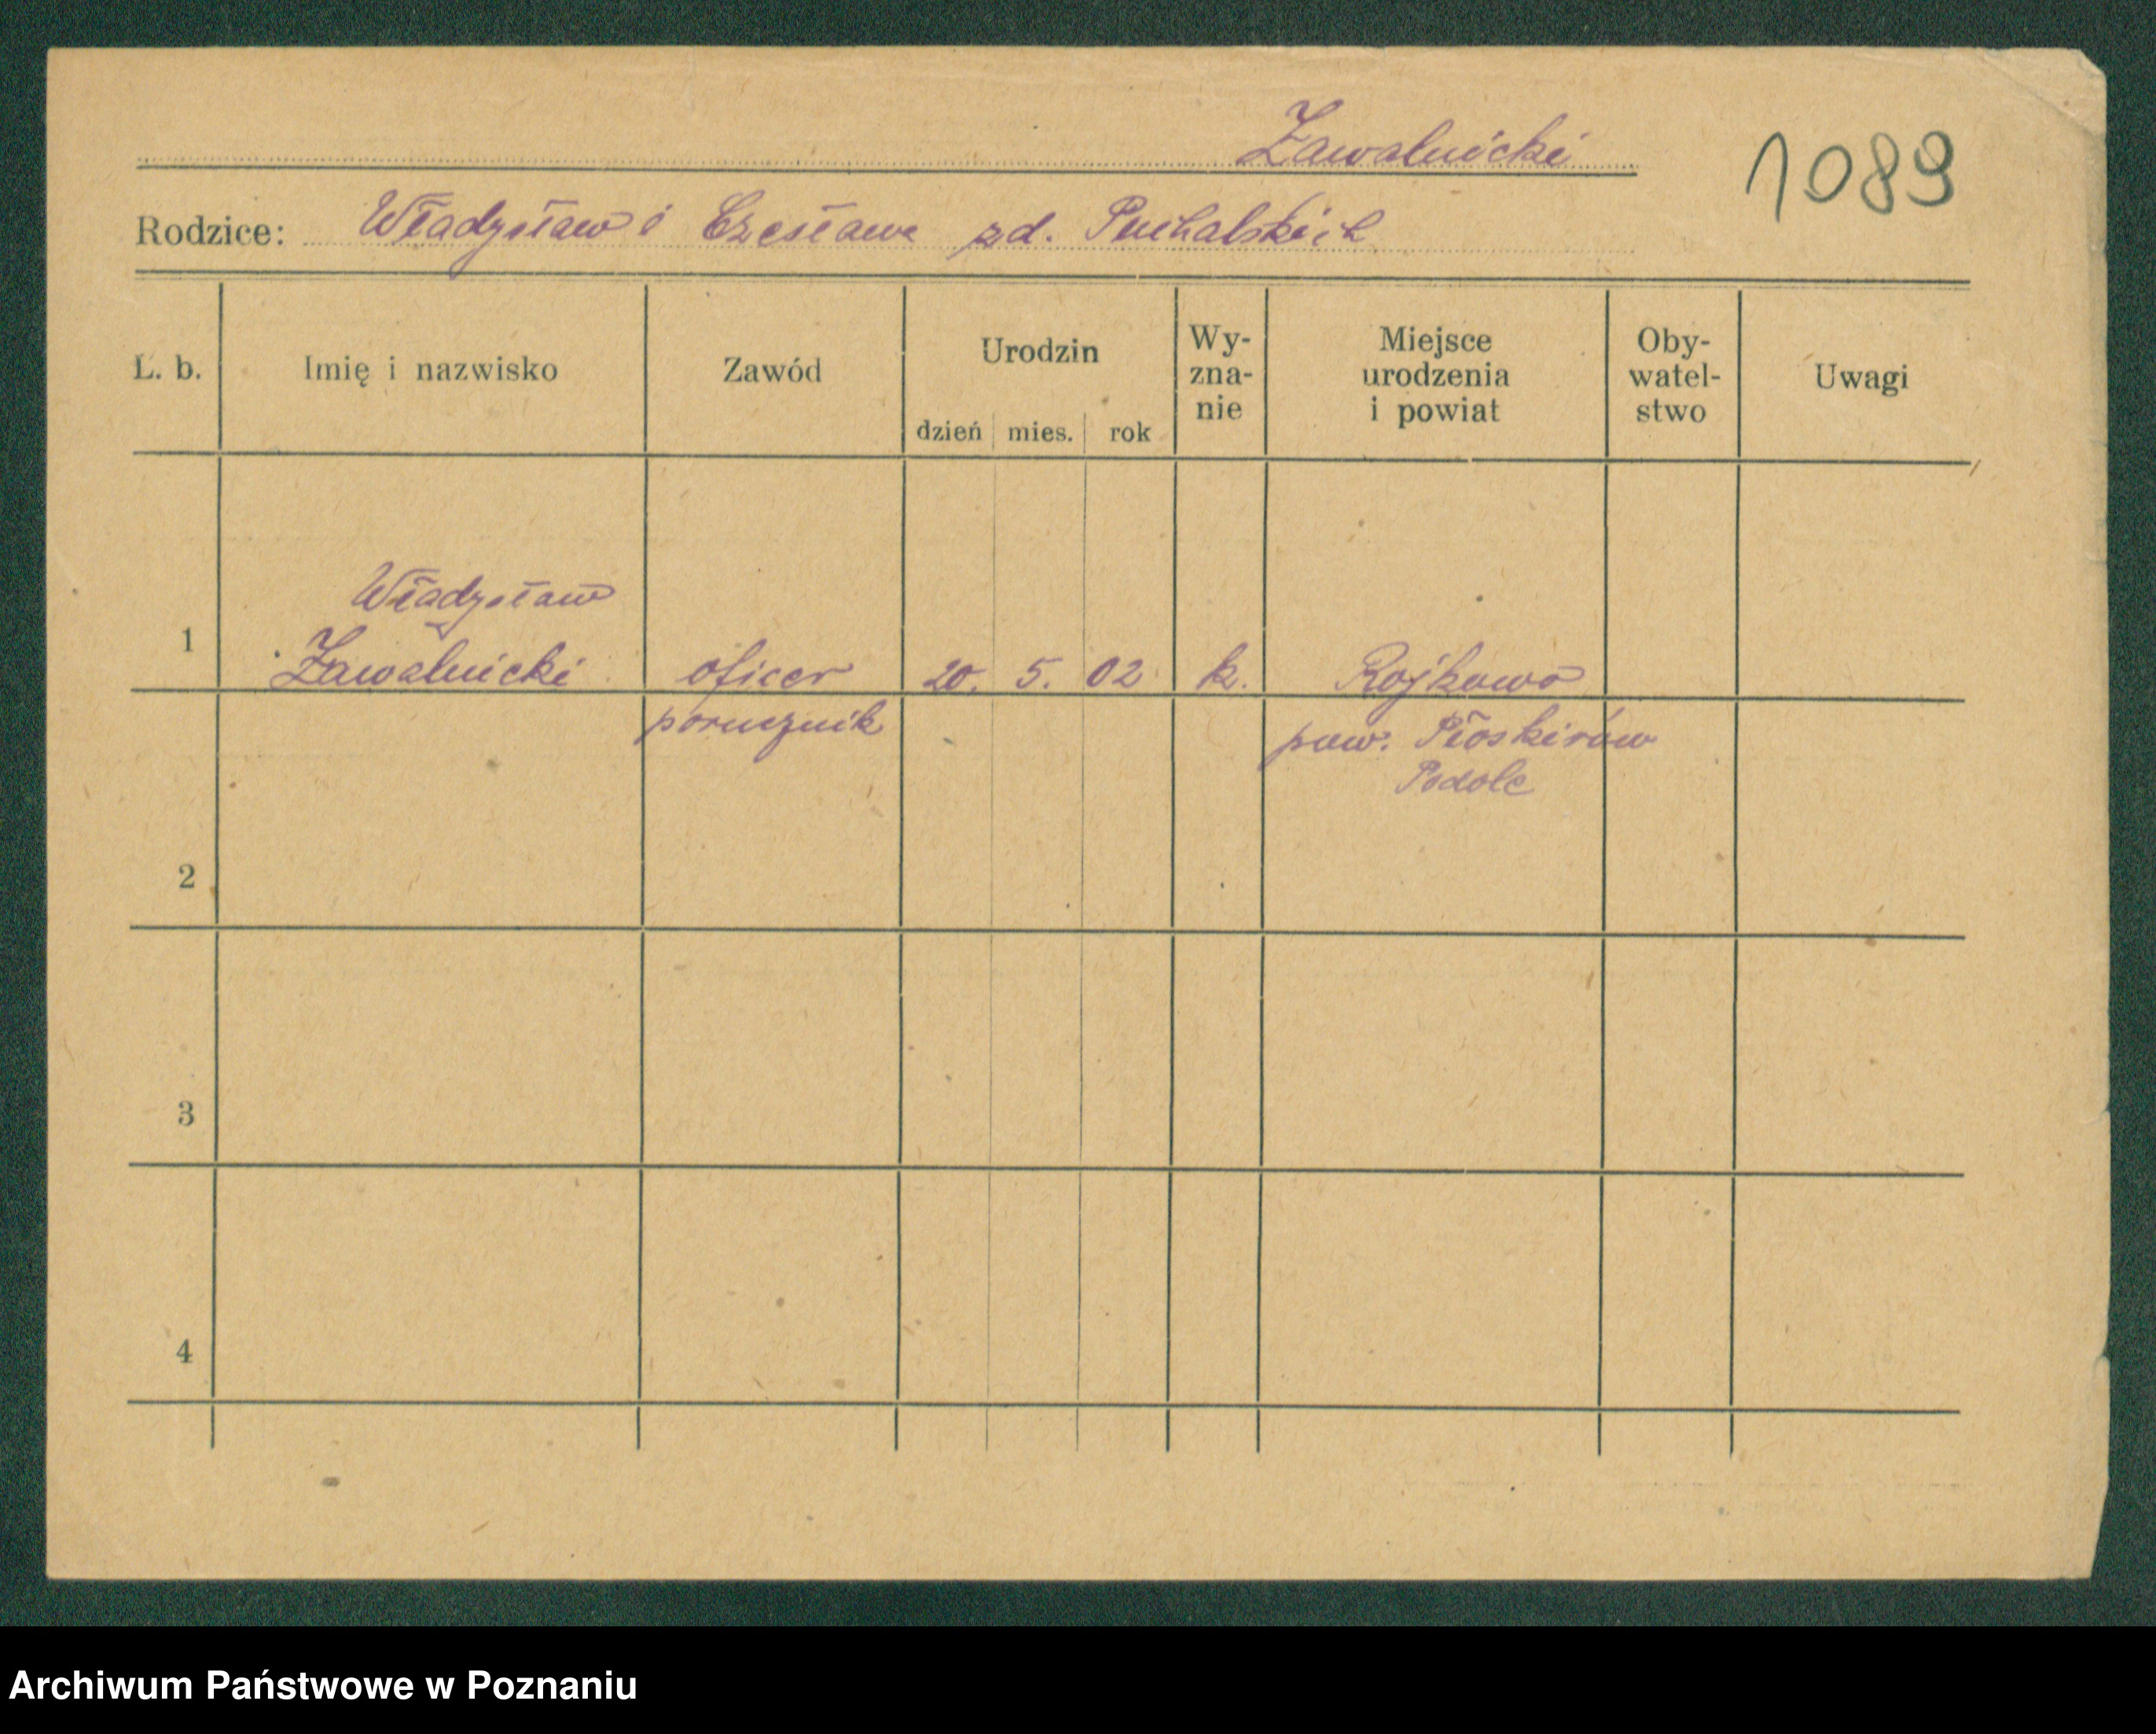 Zawalnicki
1089
Rodzice: Władysław i Czesława zd. Puchalskich
L. b. Imię i nazwisko Zawód Urodzin dzień mies. rok Wy-zna-nie Miejsce urodzenia i powiat Oby-watel-stwo Uwagi
Władysław
1 Zawalnicki oficer 20. 5. 02 k. Rojkowo
porucznik pow. Płoskirów
Podole
2
3
4
Archiwum Państwowe w Poznaniu